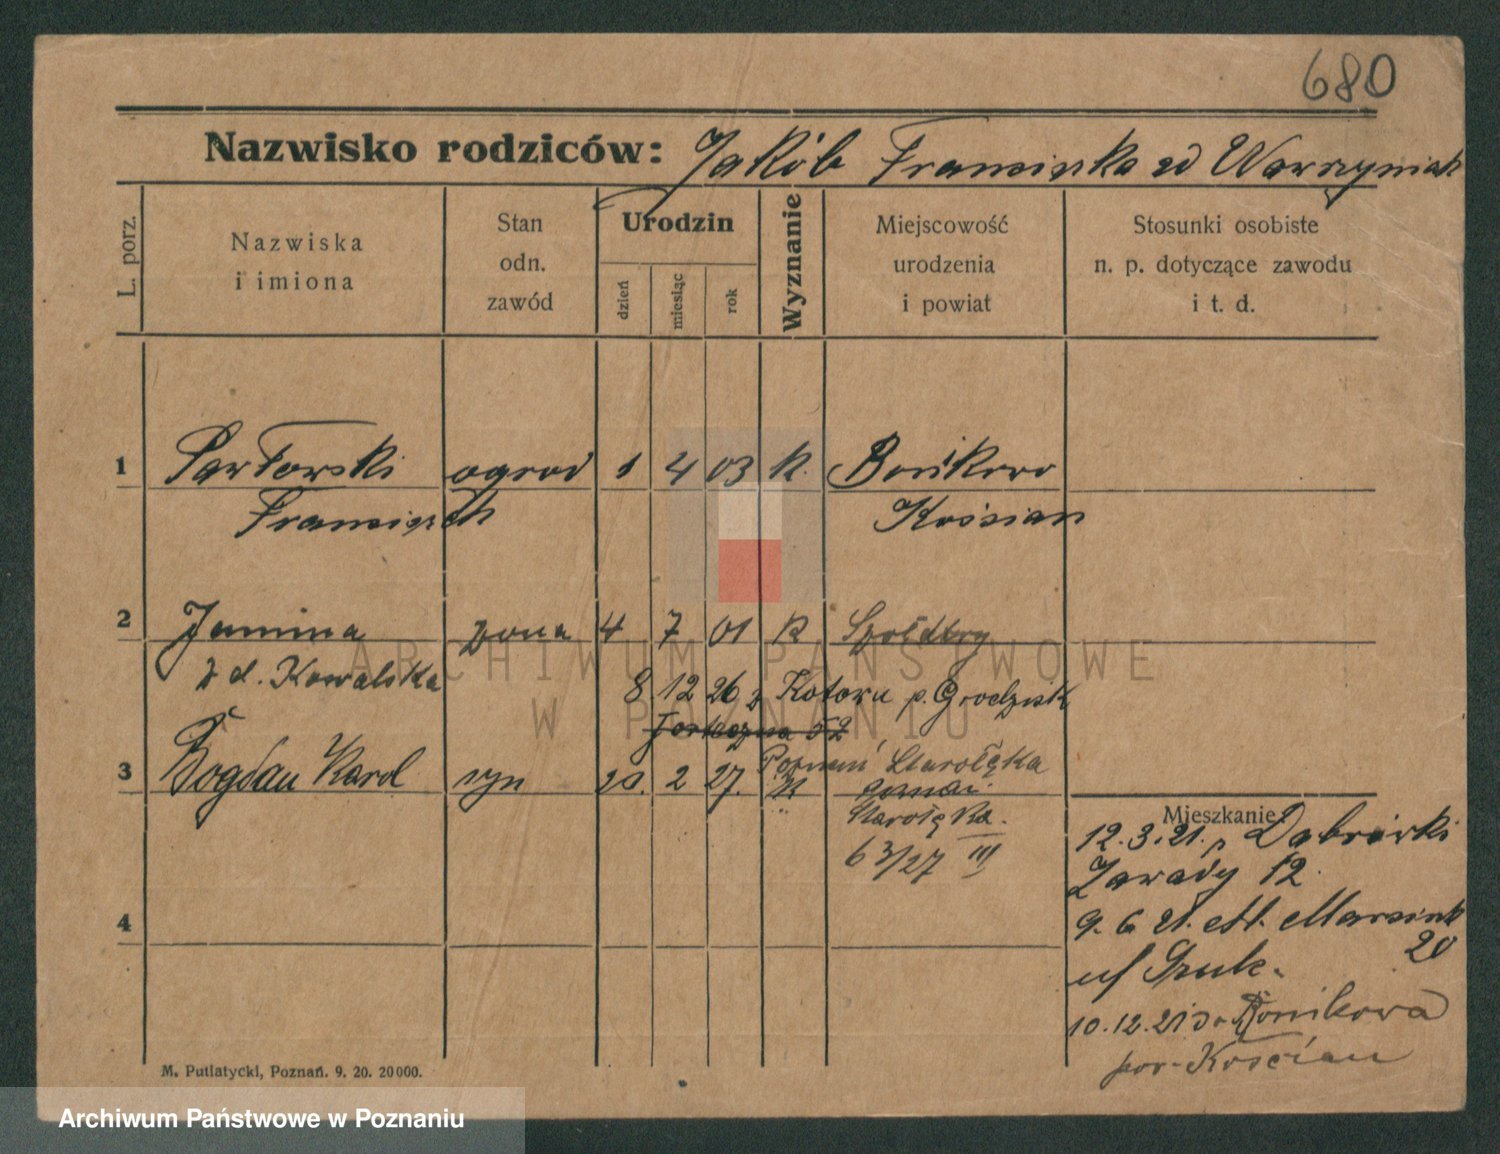 680
Nazwisko rodziców: Jakób Franciszka zd Wawrzyniak
L. porz.
Nazwiska
i imiona
Stan
odn.
zawód
Urodzin
dzień
miesiąc
rok
Wyznanie
Miejscowość
urodzenia
i powiat
Stosunki osobiste
n. p. dotyczące zawodu
i t. d.
1 Pawłowski ogrod 1 4 03 K. Bonikowo
Franciszek Kościan
2 Janina żona 4 7 01 K
z d. Kowalska
8. 12 26 z Kotowa p. Grodzisk
52
Poznań Starołęka
3 Bogdan Karol syn 2 27. K
Starołęka.
6 3/27 III
4
Mieszkanie
12.3.21. Dąbrówki
Zawady 12
9. 6 21. M. Marcink
20
10.12.21 do Bonikowa
pow. Kościan
M. Putiatycki, Poznań. 9. 20. 20000.
ARCHIWUM PAŃSTWOWE
W POZNANIU
Archiwum Państwowe w Poznaniu